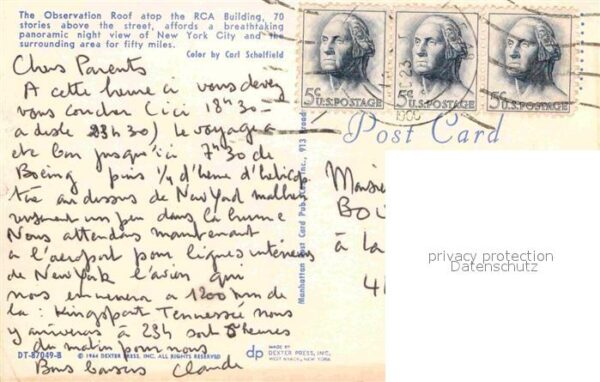 The Observation Roof atop the RCA Building, 70
stories above the street, affords a breathtaking
panoramic night view of New York City and the
surrounding area for fifty miles.
Color by Carl Scholfield
Chers Parents
A cette heure ci vous devez
vous coucher (ici 18h30 -
23h30) le voyage a
ete bon jusqu'ici 7h30 de
Boeing puis 1/4 d'heure d'helicop
tère au dessus de New York malheu
reusement un peu dans la brume
Nous attendons maintenant
a l'aeroport pour lignes intérieures
de New York l'avion qui
nous emmenera a 1200 km de
la : Kingsport Tennessée nous
y arriverons à 23h soit 5 heures
du matin pour nous
Bons baisers Claude
DT-87049-B
© 1964 DEXTER PRESS, INC. ALL RIGHTS RESERVED
Manhattan Post Card Pub. Co., Inc., 913 Broad
dp
MADE BY
DEXTER PRESS, INC.
WEST NYACK, NEW YORK
5¢ U.S. POSTAGE
5¢ U.S. POSTAGE
5¢ U.S. POSTAGE
Post Card
Monsie
à la
privacy protection
Datenschutz